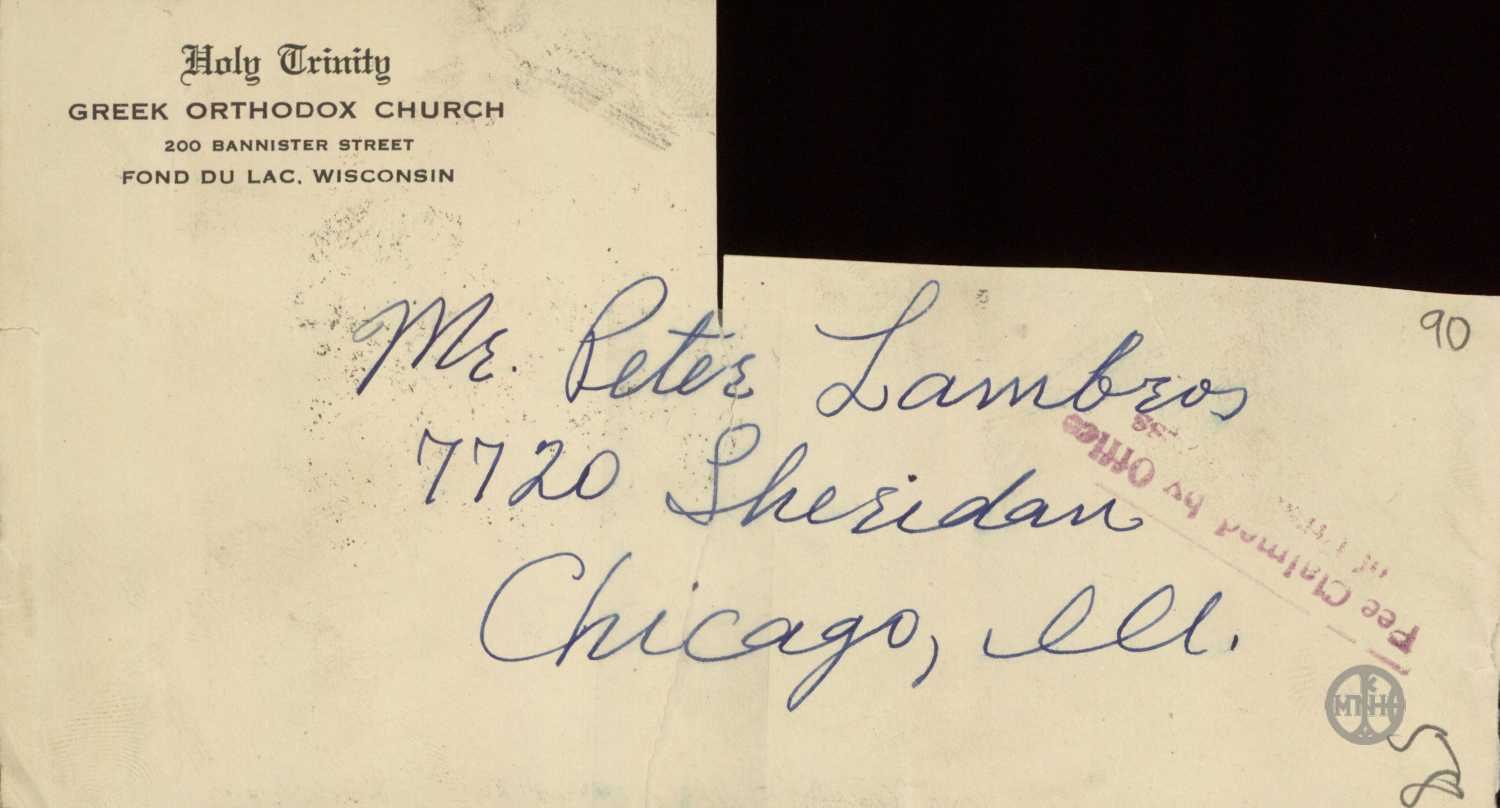 Holy Trinity
GREEK ORTHODOX CHURCH
200 BANNISTER STREET
FOND DU LAC, WISCONSIN
90
Mr. Peter Lambros
7720 Sheridan
Chicago, Ill.
Fee Claimed by Office